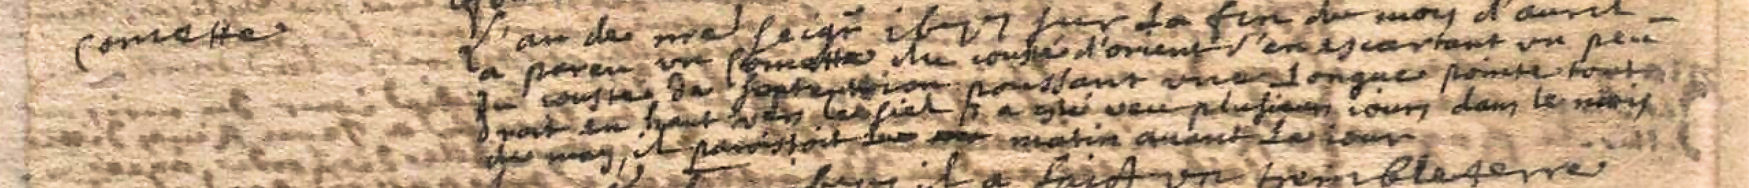 Comette
L'an de nre seigr sur la fin du moy d'avril
a pareu un Comette du cousté d'orient s'en escartant un peu
du cousté du septentrion poussant une longue pointe tout
droit en haut vers le siel Il a esté veu plusieurs iours dans le mois
de may, il paroissoit matin avant le iour
il a faict un trembleterre